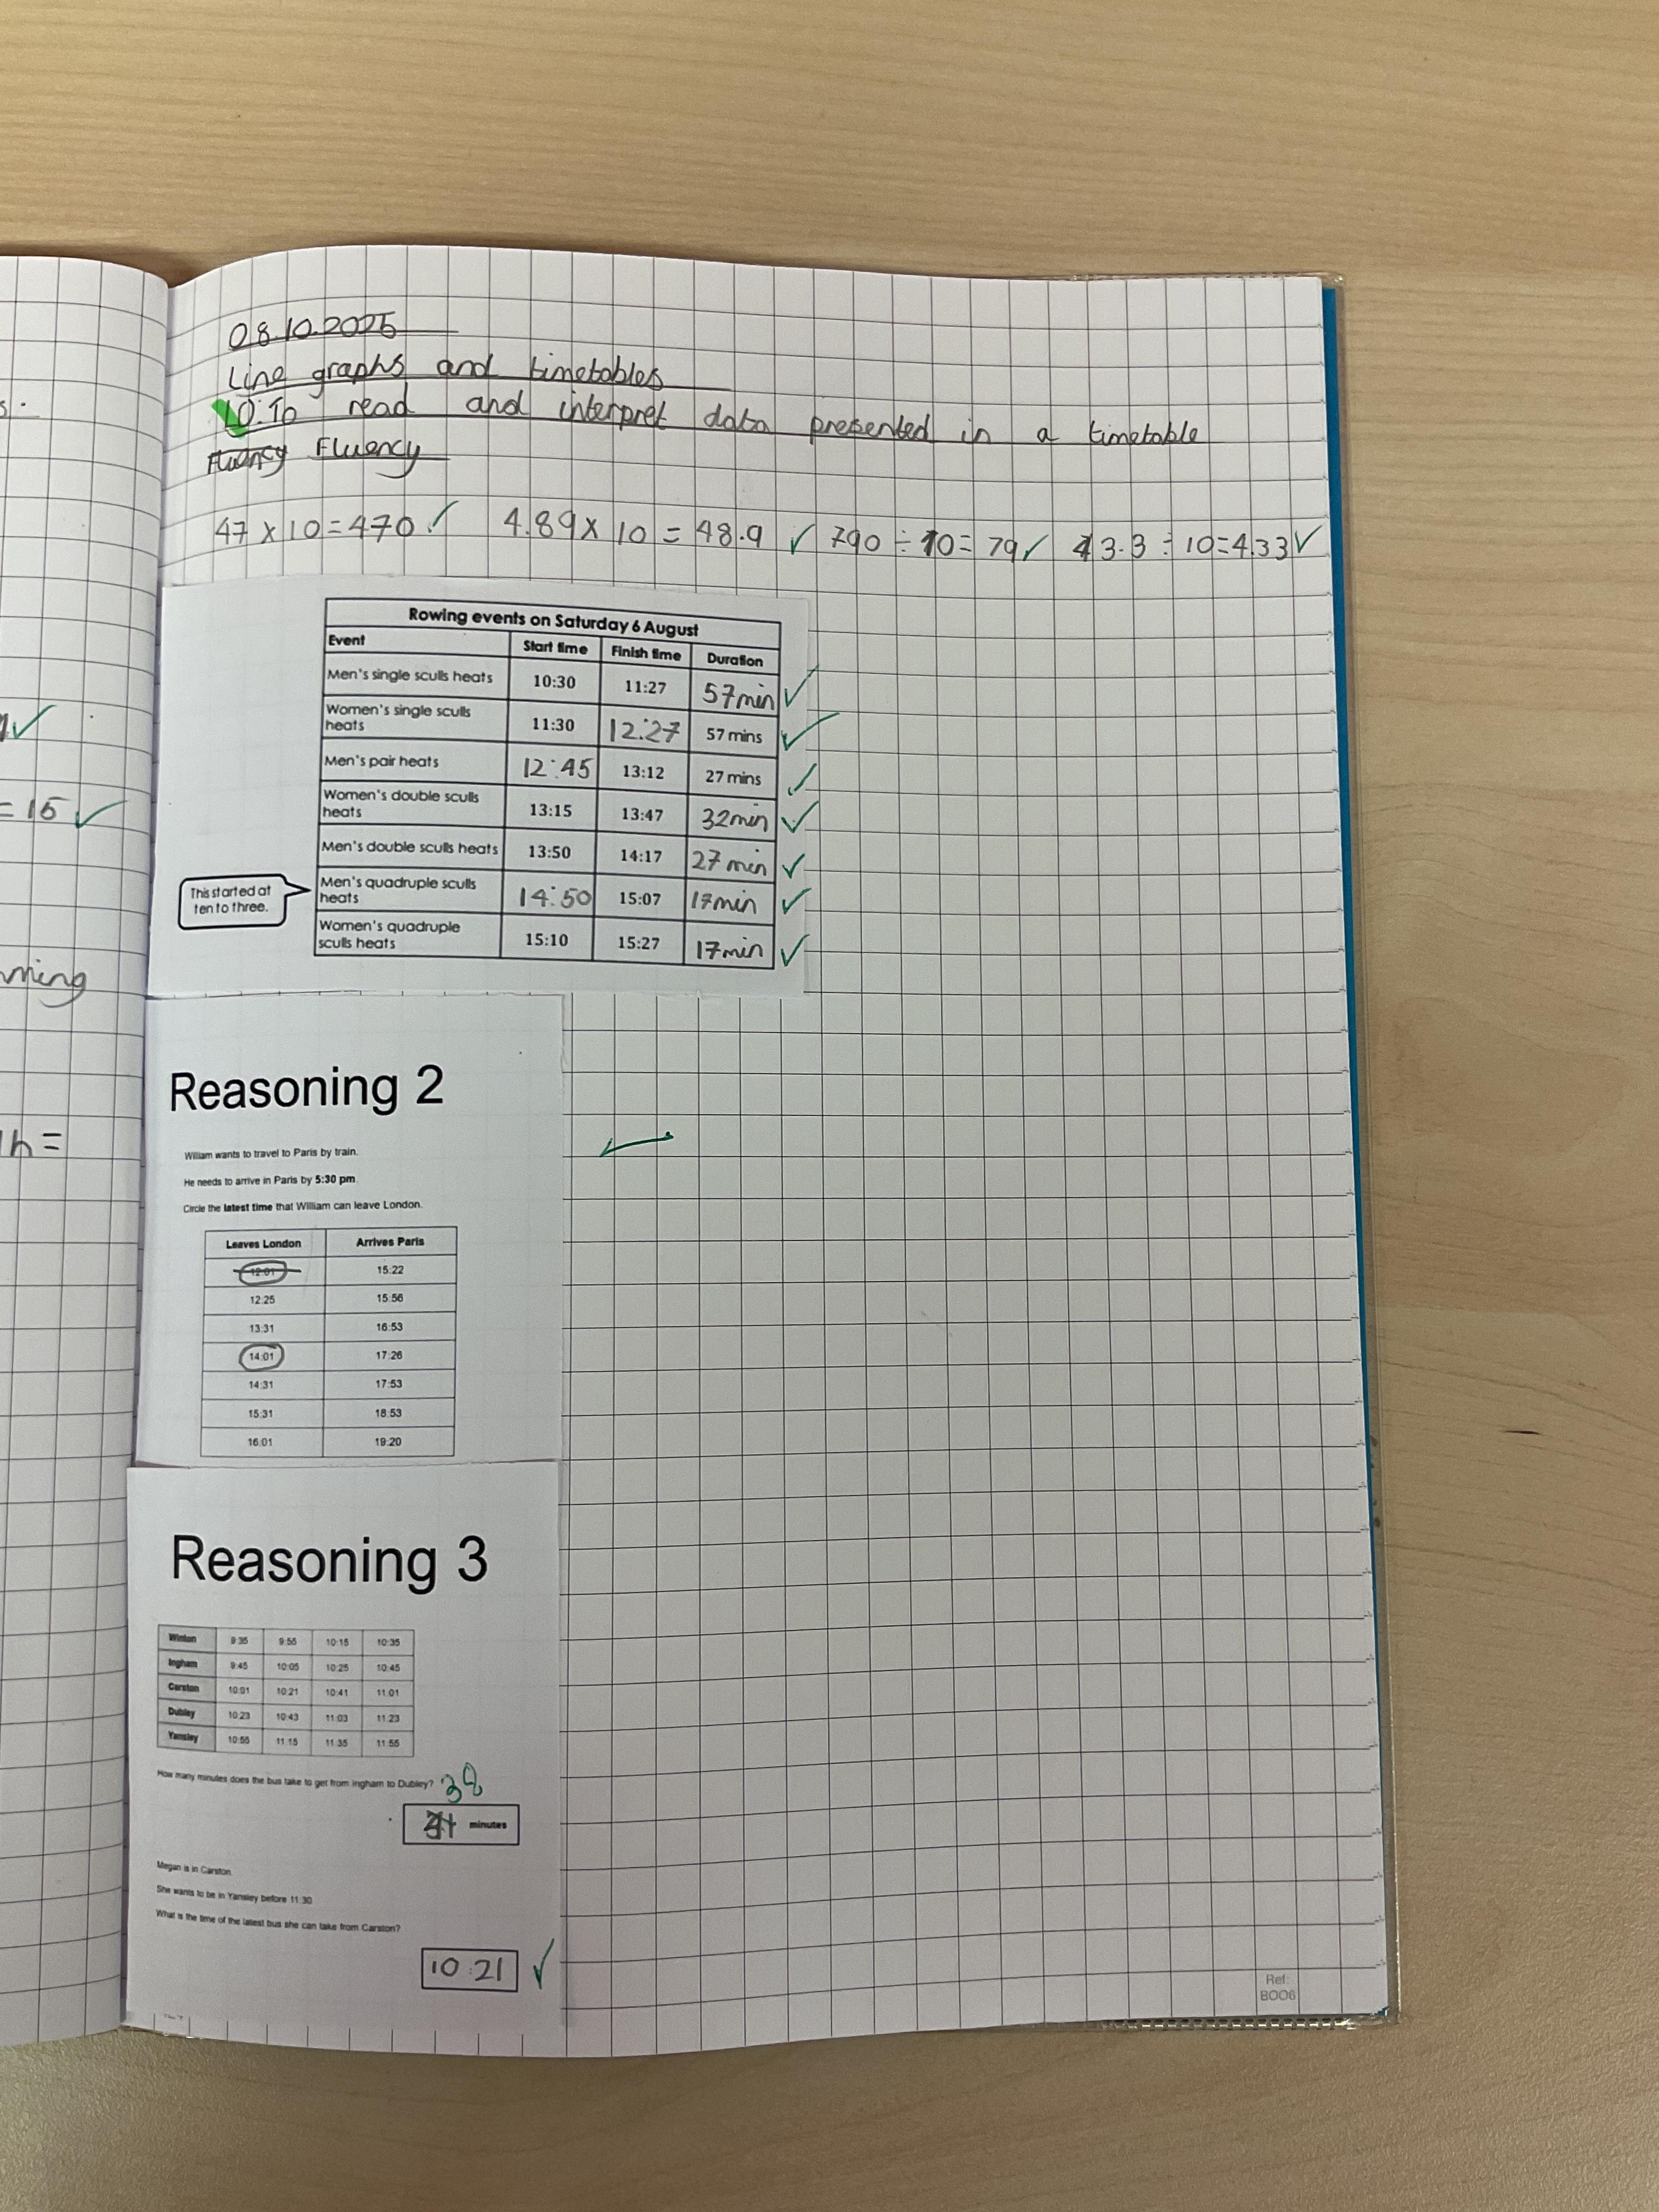 08.10.2025
Line graphs and timetables
LO: To read and interpret data presented in a timetable
Fluency Fluency
47 x 10 = 470 4.89 x 10 = 48.9 790 ÷ 10 = 79 43.3 ÷ 10 = 4.33
Rowing events on Saturday 6 August
Event Start time Finish time Duration
Men's single sculls heats 10:30 11:27 57min
Women's single sculls heats 11:30 12:27 57 mins
Men's pair heats 12:45 13:12 27 mins
Women's double sculls heats 13:15 13:47 32min
Men's double sculls heats 13:50 14:17 27min
This started at ten to three.
Men's quadruple sculls heats 14:50 15:07 17min
Women's quadruple sculls heats 15:10 15:27 17min
= 15
ning
h =
Reasoning 2
William wants to travel to Paris by train.
He needs to arrive in Paris by 5:30 pm.
Circle the latest time that William can leave London.
Leaves London Arrives Paris
12:01 15:22
12:25 15:56
13:31 16:53
14:01 17:26
14:31 17:53
15:31 18:53
16:01 19:20
Reasoning 3
Winton 9:35 9:55 10:15 10:35
Ingham 9:45 10:05 10:25 10:45
Carston 10:01 10:21 10:41 11:01
Dubley 10:23 10:43 11:03 11:23
Yansley 10:55 11:15 11:35 11:55
How many minutes does the bus take to get from Ingham to Dubley?
38
minutes
Megan is in Carston.
She wants to be in Yansley before 11:30
What is the time of the latest bus she can take from Carston?
10:21
Ref:
BOO6